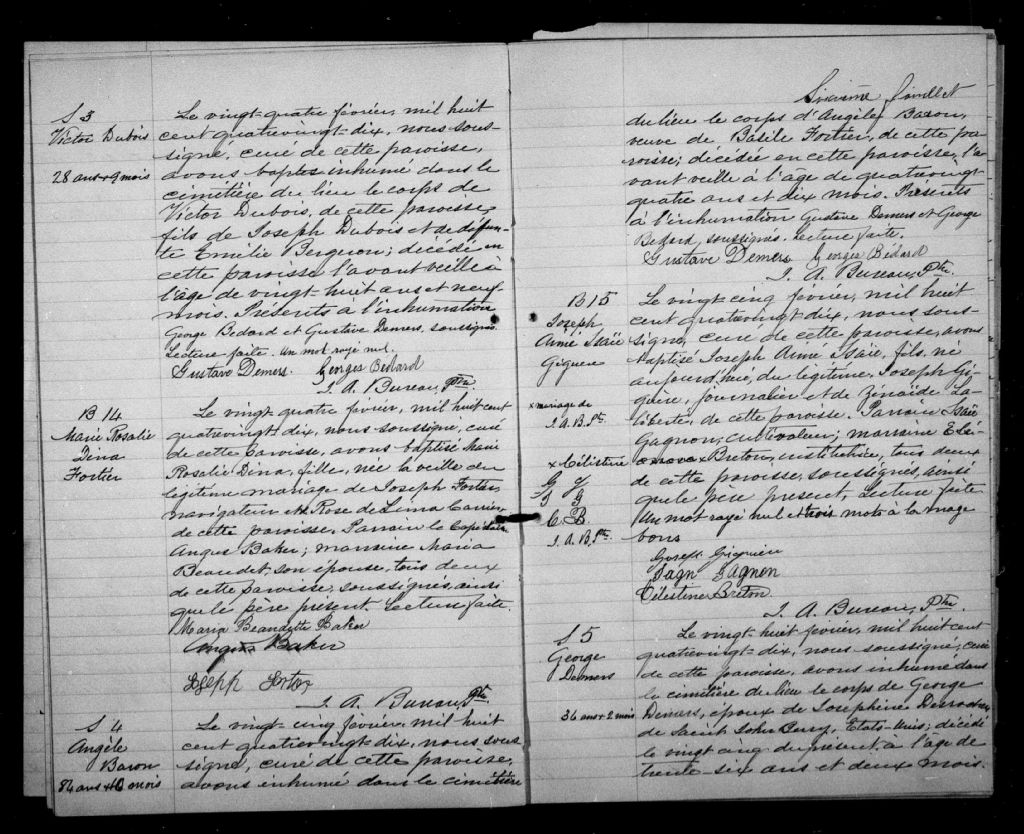 S 3
Victor Dubois
28 ans & 9 mois
Le vingt-quatre février, mil huit
cent quatrevingt-dix, nous sous-
signé, curé de cette paroisse,
avons baptes inhumé dans le
cimetière du lieu le corps de
Victor Dubois, de cette paroisse,
fils de Joseph Dubois et de défun-
te Emélie Bergeron; décédé en
cette paroisse l'avant veille à
l'âge de vingt-huit ans et neuf
mois. Présents à l'inhumation
George Bedard et Gustave Demers, soussignés.
Lecture faite. Un mot rayé nul.
Gustave Demers. Georges Bédard
J. A. Bureau, Ptre
B 14
Marie Rosalie
Dina
Fortier
Le vingt-quatre février, mil huit cent
quatrevingt-dix, nous soussigné, curé
de cette paroisse, avons baptisé Marie
Rosalie Dina, fille, née la veille du
légitime mariage de Joseph Fortier,
navigateur et de Rose de Lima Carrier,
de cette paroisse. Parrain le Capitaine
Angus Baker; marraine Maria
Beaudet, son épouse, tous deux
de cette paroisse, soussignés, ainsi
que le père present. Lecture faite.
Maria Beaudette Baker
Angus Baker
Joseph Fortier
J. A. Bureau, Ptre
S 4
Angèle
Baron
84 ans & 10 mois
Le vingt-cinq février, mil huit
cent quatrevingt-dix, nous sous
signé, curé de cette paroisse,
avons inhumé dans le cimetière
Sixième feuillet
du lieu le corps d'Angèle Baron,
veuve de Basile Fortier, de cette pa-
roisse; décédée en cette paroisse, l'a-
vant veille à l'age de quatrevingt
quatre ans et dix mois. Présents
à l'inhumation Gustave Demers et George
Bedard, soussignés. Lecture faite.
Gustave Demers Georges Bédard
J. A. Bureau, Ptre.
B 15
Joseph
Aimé Isaïe
Giguere
x mariage de
J. A. B. Ptr.
x Célistine
G
J G
C. B.
J. A. B. Ptre
Le vingt-cinq février, mil huit
cent quatrevingt-dix, nous sous-
signé, curé de cette paroisse, avons
baptisé Joseph Aimé Isaïe, fils, né
aujourd'hui, du légitime, Joseph Gi-
guère, journalier et de Zénaïde La-
liberté, de cette paroisse. Parrain Isaïe
Gagnon, cultivateur; marraine
x Breton, institutrice, tous deux
de cette paroisse, soussignés, ainsi
que le père present, Lecture faite
Un mot rayé nul et trois mots à la marge
bons
Joseph Giguère
Gagnon
Célestine Breton
J. A. Bureau, Ptre
S 5
George
Demers
36 ans & 2 mois
Le vingt-huit février, mil huit cent
quatrevingt-dix, nous soussigné, curé
de cette paroisse, avons inhumé dans
le cimetière du lieu le corps de George
Demers, époux de Josephine Desroches,
de Saint John Bury, Etats-Unis; décédé
le vingt cinq du présent, à l'âge de
trente-six ans et deux mois.